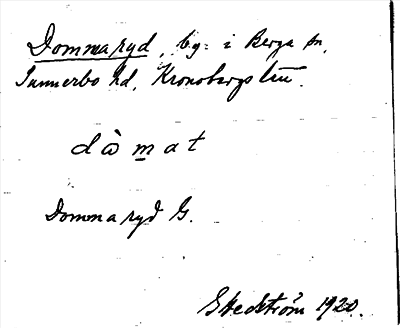 Dommaryd, by: i Berga sn,
Sunnerbo hd, Kronobergs län.
dàmat
Dommaryd G.
Ekedström 1920.